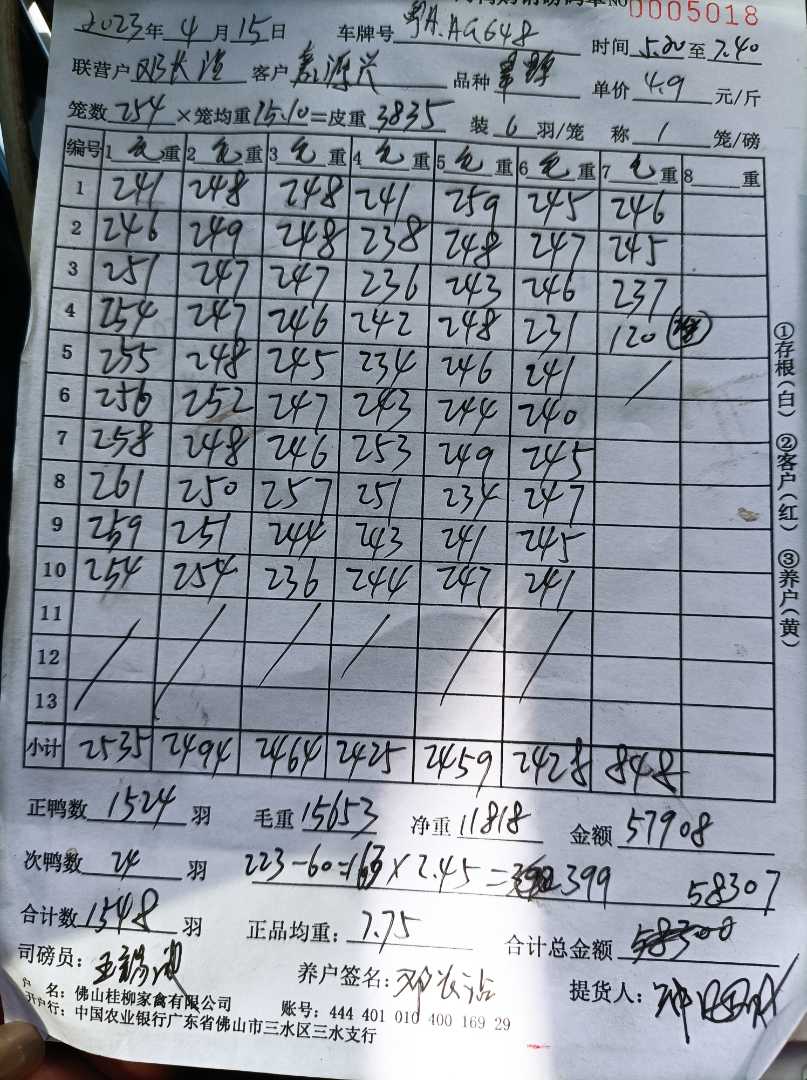 NO 0005018
2023年 4月 15日 车牌号 粤A.AG648 时间 5.20 至 7.40
联营户 邓长沾 客户 源兴 品种 单价 4.9 元/斤
笼数 254 ×笼均重 15.10 =皮重 3835 装 6 羽/笼 称 1 笼/磅
编号 1 毛重 2 毛重 3 毛重 4 毛重 5 毛重 6 毛重 7 毛重 8 重
1 241 248 248 241 259 245 246
2 246 249 248 238 248 247 245
3 251 247 247 236 243 246 237
4 254 247 246 242 248 231 120
5 255 248 245 234 246 241 /
6 256 252 247 243 244 240
7 258 248 246 253 249 245
8 261 250 257 251 234 247
9 259 251 244 243 241 245
10 254 254 236 244 247 241
11
12 / / / / / /
13
小计 2535 2494 2464 2425 2459 2428 848
正鸭数 1524 羽 毛重 15653 净重 11818 金额 57908
次鸭数 24 羽 223-60=163×2.45=399 58307
合计数 1548 羽 正品均重: 7.75 合计总金额 58300
司磅员: 养户签名: 邓长沾 提货人:
户 名: 佛山桂柳家禽有限公司 账号: 444 401 010 400 169 29
开户行: 中国农业银行广东省佛山市三水区三水支行
①存根(白) ②客户(红) ③养户(黄)